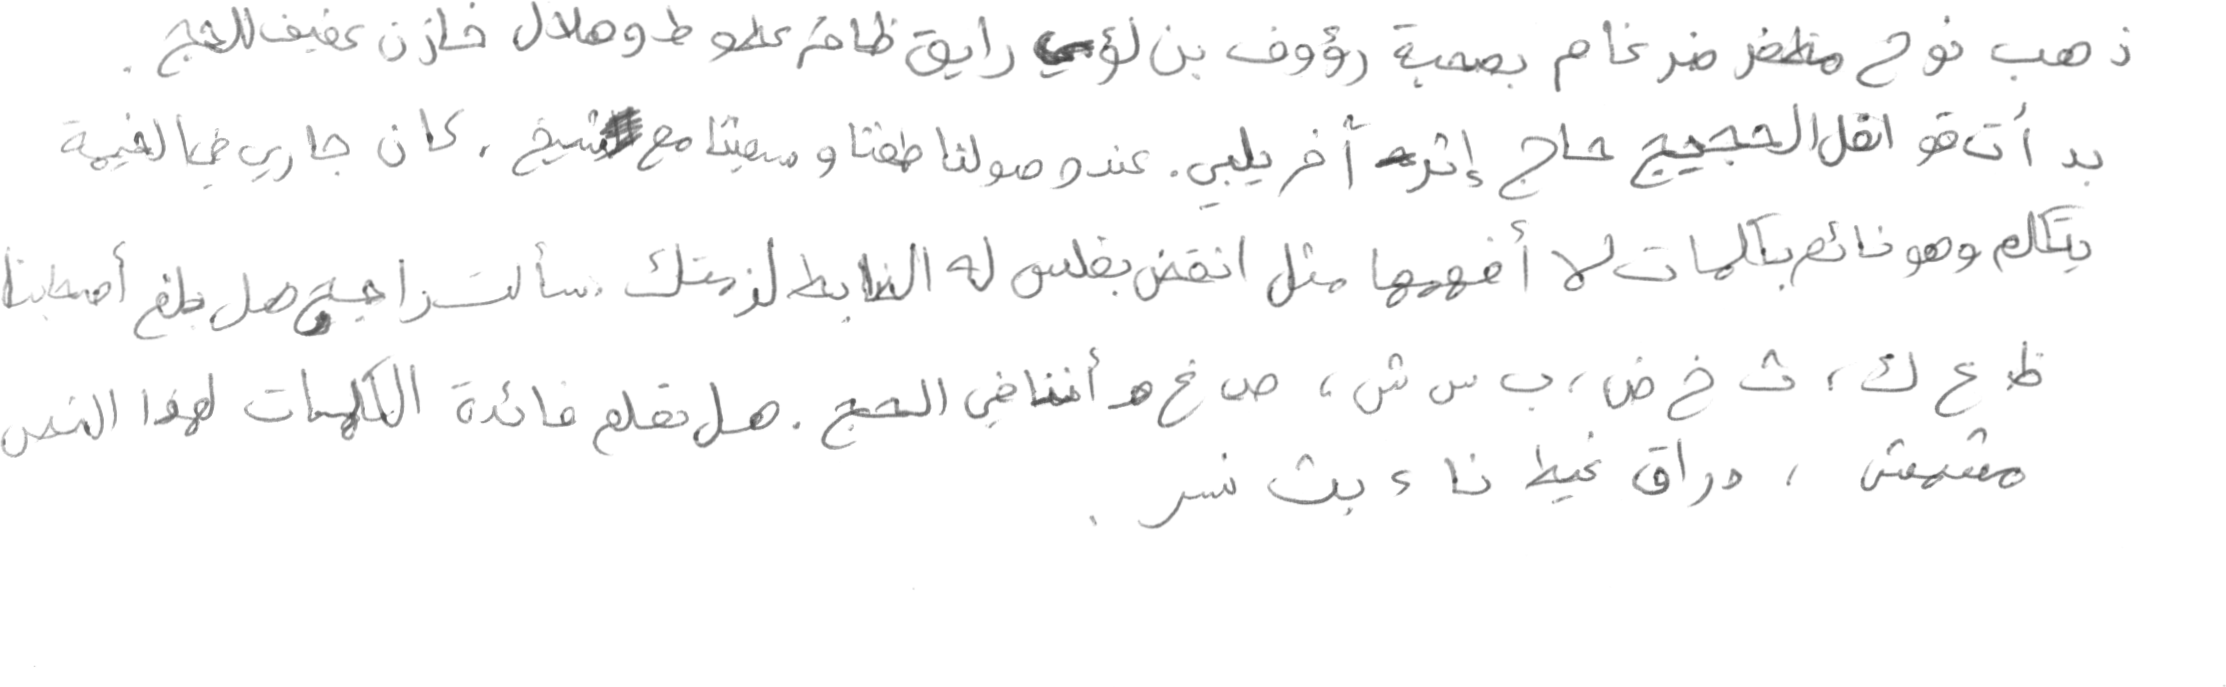 ذهب نوح مظفر ضرغام بصحبة رؤوف بن لؤي رايق ظافر عطوط وهلال خازن عفيف للحج .
بدأت قوافل الحجيج حاج إثر آخر يلبي . عند وصولنا طفنا وسعينا مع الشيخ . كان جاري في الخيمة
يتكلم وهو نائم بكلمات لا أفهمها مثل انقض بفلس له الضابط لزمتك . سألت راجح هل بلغ أصحابنا
ظ ع ك ، ث خ ض ، ب س ش ، ص غ هـ أننا في الحج . هل تعلم فائدة الكلمات لهذا النص
مشمش ، دراق غيط ناء بث نسر .